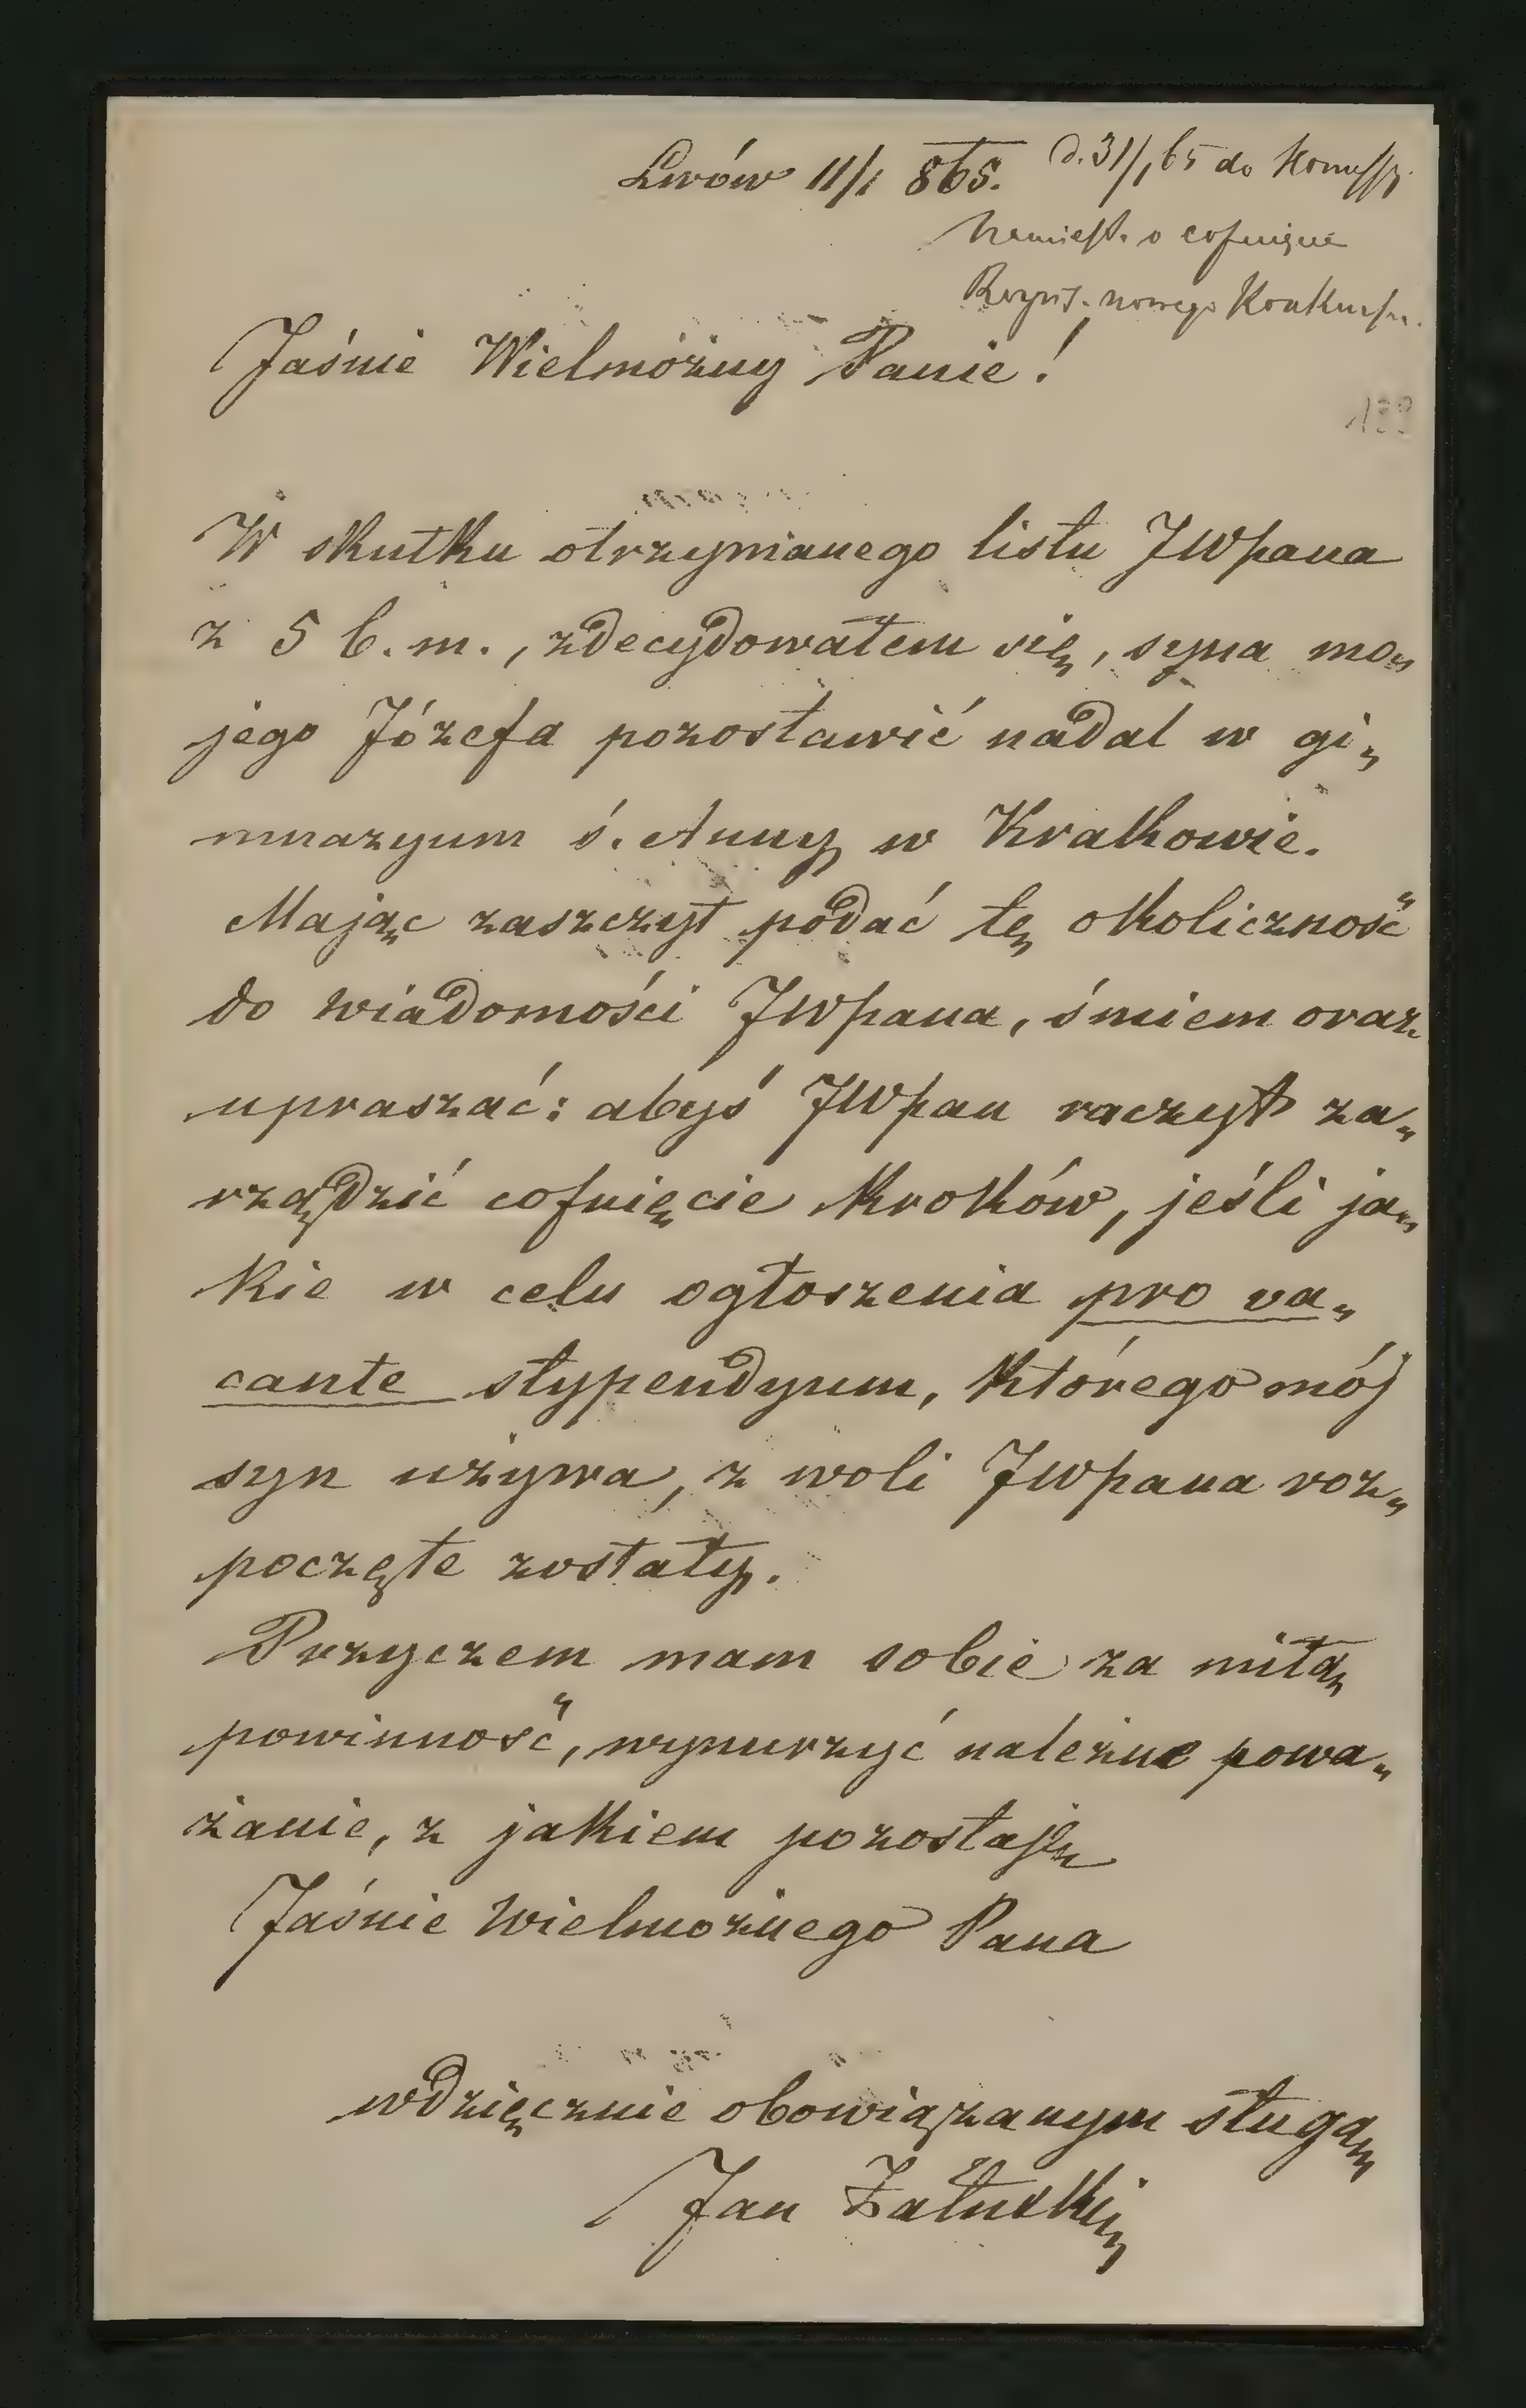 Lwów 11/1 865.
d. 31/1 65 do Komissyi
Namiest. o cofnięcie
Rozpis. nowego Konkursu.
Jaśnie Wielmóżny Panie!
W skutku otrzymanego listu JWpana
z 5 b. m., zdecydowałem się, syna mo„
jego Józefa pozostawić nadal w gi„
mnazyum ś. Anny w Krakowie.
Mając zaszczyt podać tę okoliczność
do wiadomości JWpana, śmiem oraz
upraszać: abyś JWpan raczył za„
rządzić cofnięcie kroków, jeśli ja„
kie w celu ogłoszenia pro va„
cante stypendyum, którego mój
syn używa, z woli JWpana roz„
poczęte zostały.
Przyczem mam sobie za miłą
powinność, wynurzyć należne powa„
żanie, z jakiem pozostaję
Jaśnie Wielmożnego Pana
wdzięcznie obowiązanym sługą
Jan Załuski